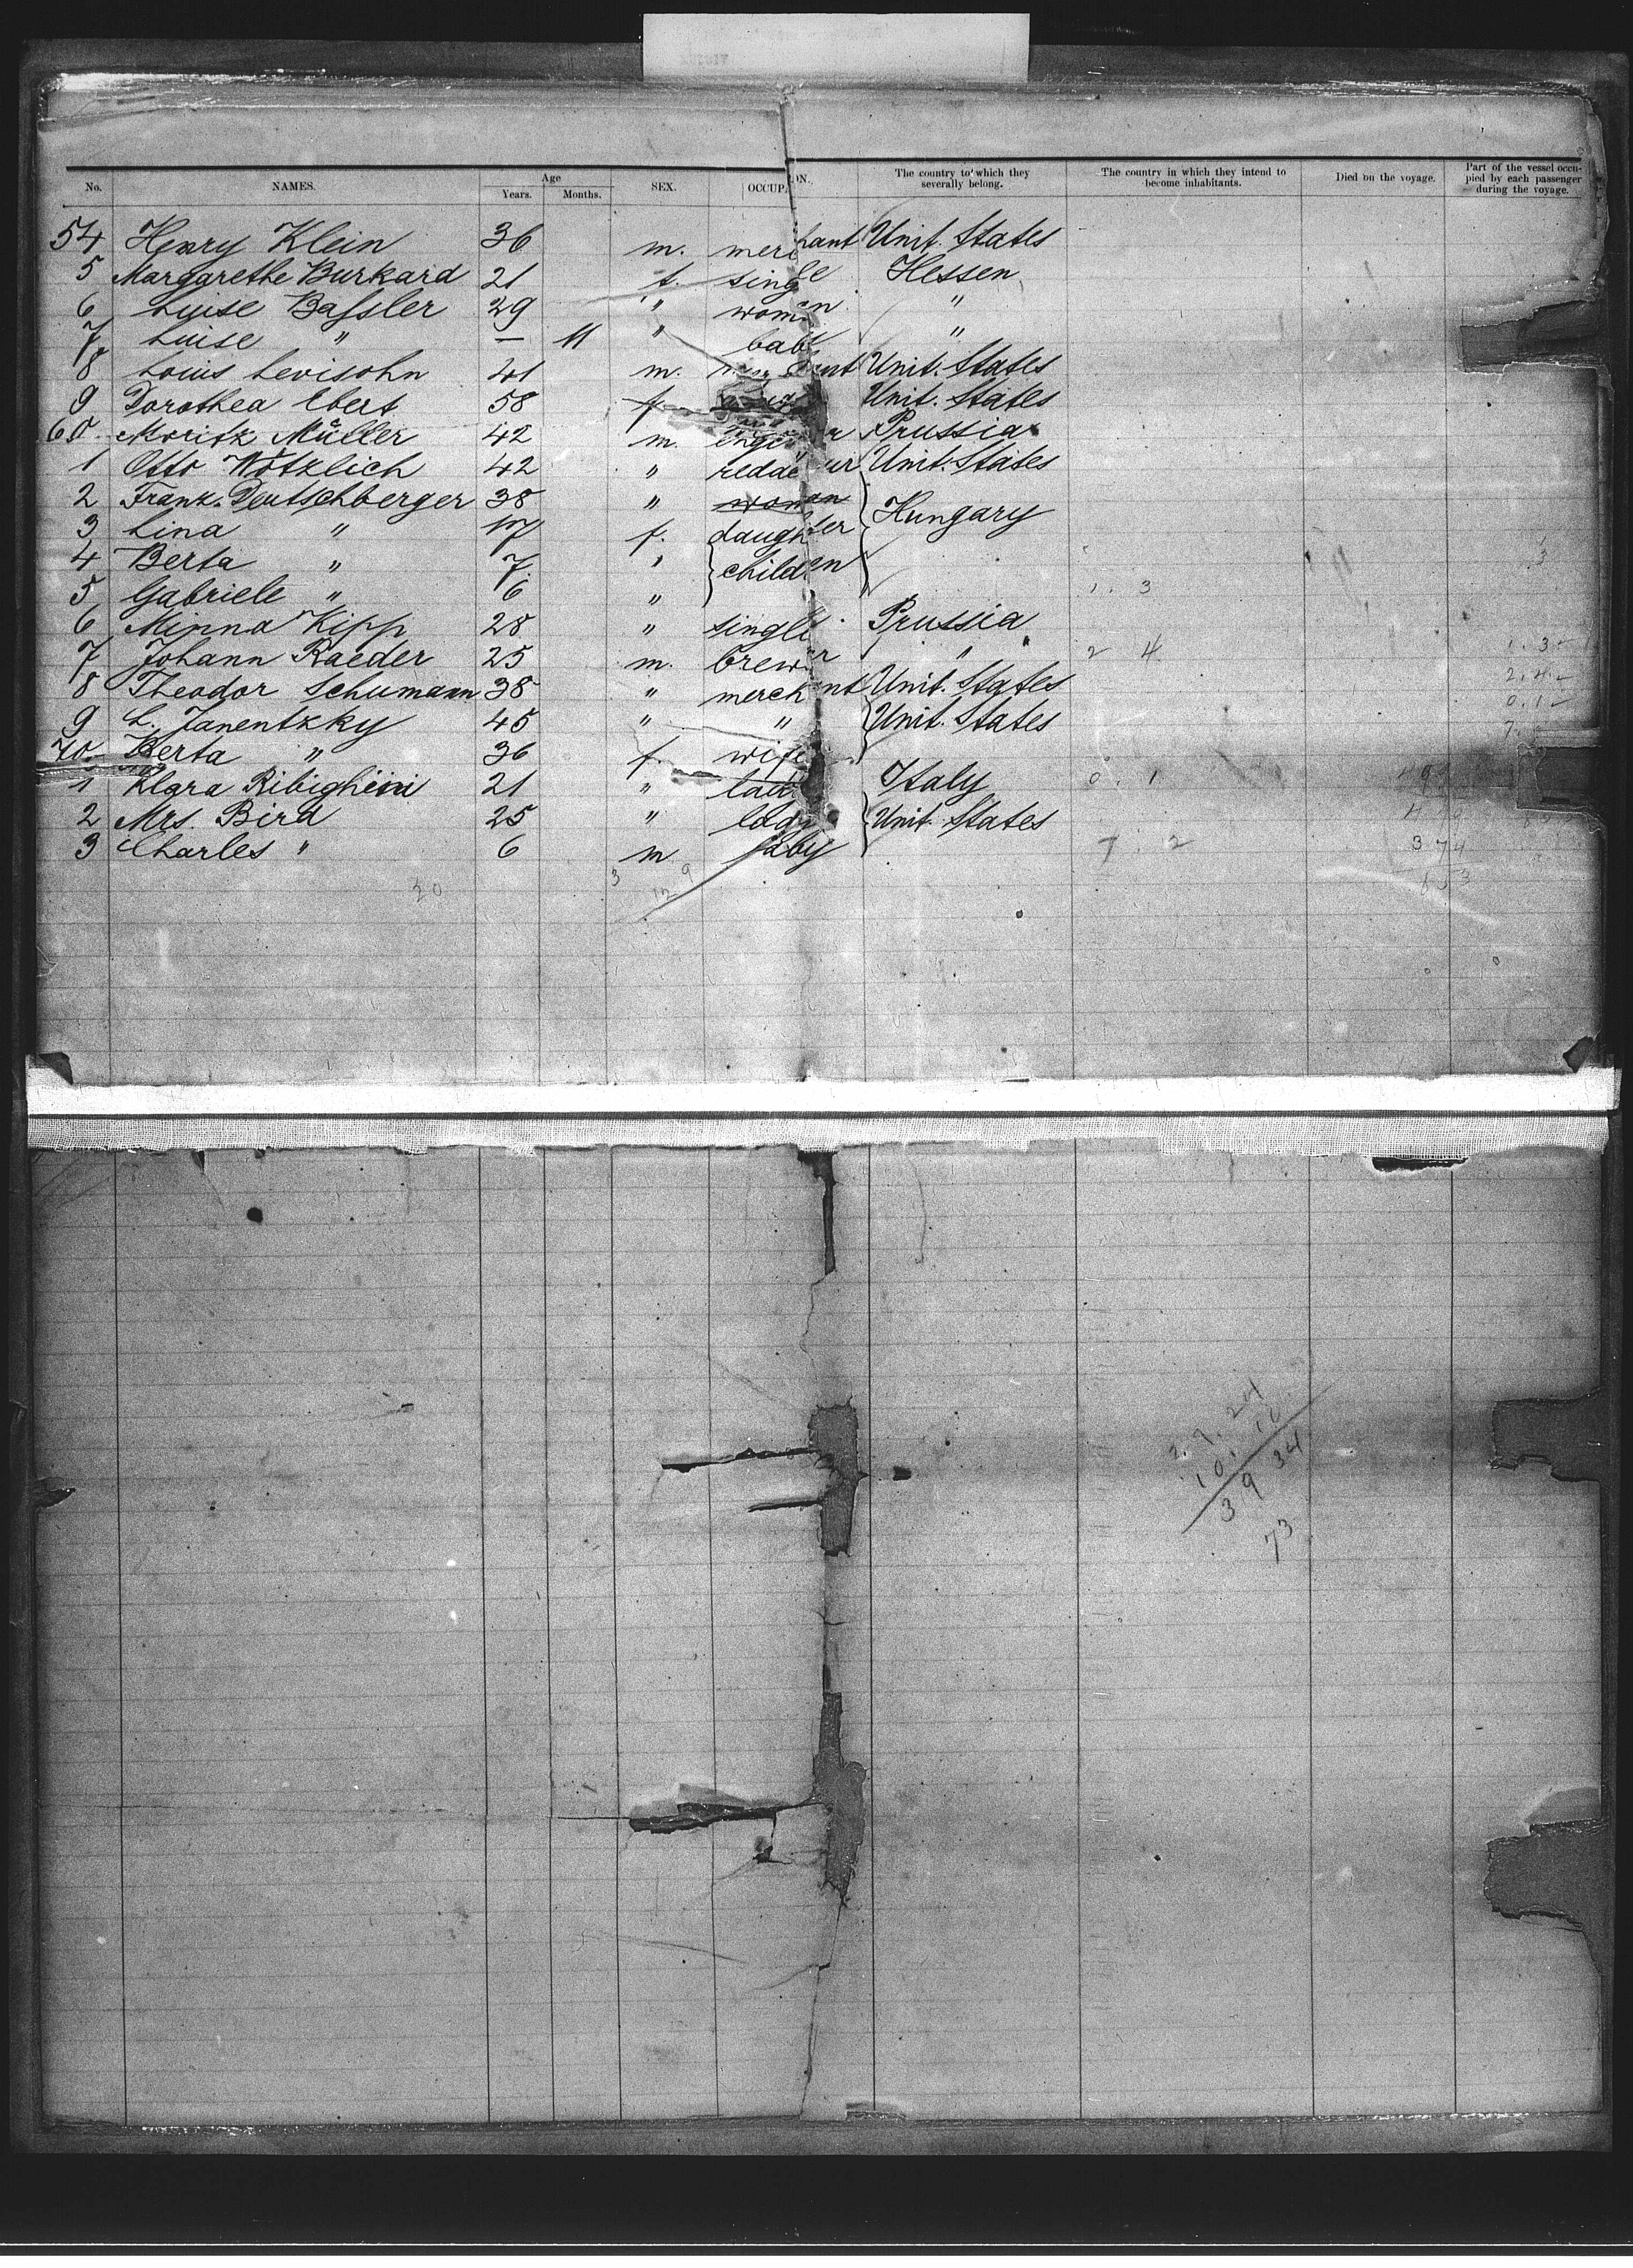 No. NAMES. Age Years. Months. SEX. OCCUPATION. The country to which they severally belong. The country in which they intend to become inhabitants. Died on the voyage. Part of the vessel occupied by each passenger during the voyage.
54 Henry Klein 36 m. merchant Unit. States
5 Margarethe Burkard 21 f. single Hessen
6 Luise Bassler 29 " woman "
7 Luise " — 11 " baby "
8 Louis Levisohn 41 m. merchant Unit. States
9 Dorothea Ebert 58 f. Unit. States
60. Moritz Müller 42 m. Prussia
1 Otto Wötzlich 42 " Unit. States
2 Frank. Deutschberger 38 " woman Hungary
3 Lina " 17 f. daughter
4 Berta " 7. " children
5 Gabriele " 6 "
6 Minna Kipp 28 " single Prussia
7 Johann Raeder 25 m. brewer "
8 Theodor Schumann 38 " merchant Unit. States
9 L. Janentzky 45 " " Unit. States
70. Berta " 36 f. wife
1 Klara Ribighini 21 " lady Italy
2 Mrs. Bird 25 " lady Unit. States
3 Charles " 6 m baby
1. 3
2 4
0. 1
7. 2
20
3
12 9
374
653
10. 10
39 34
73